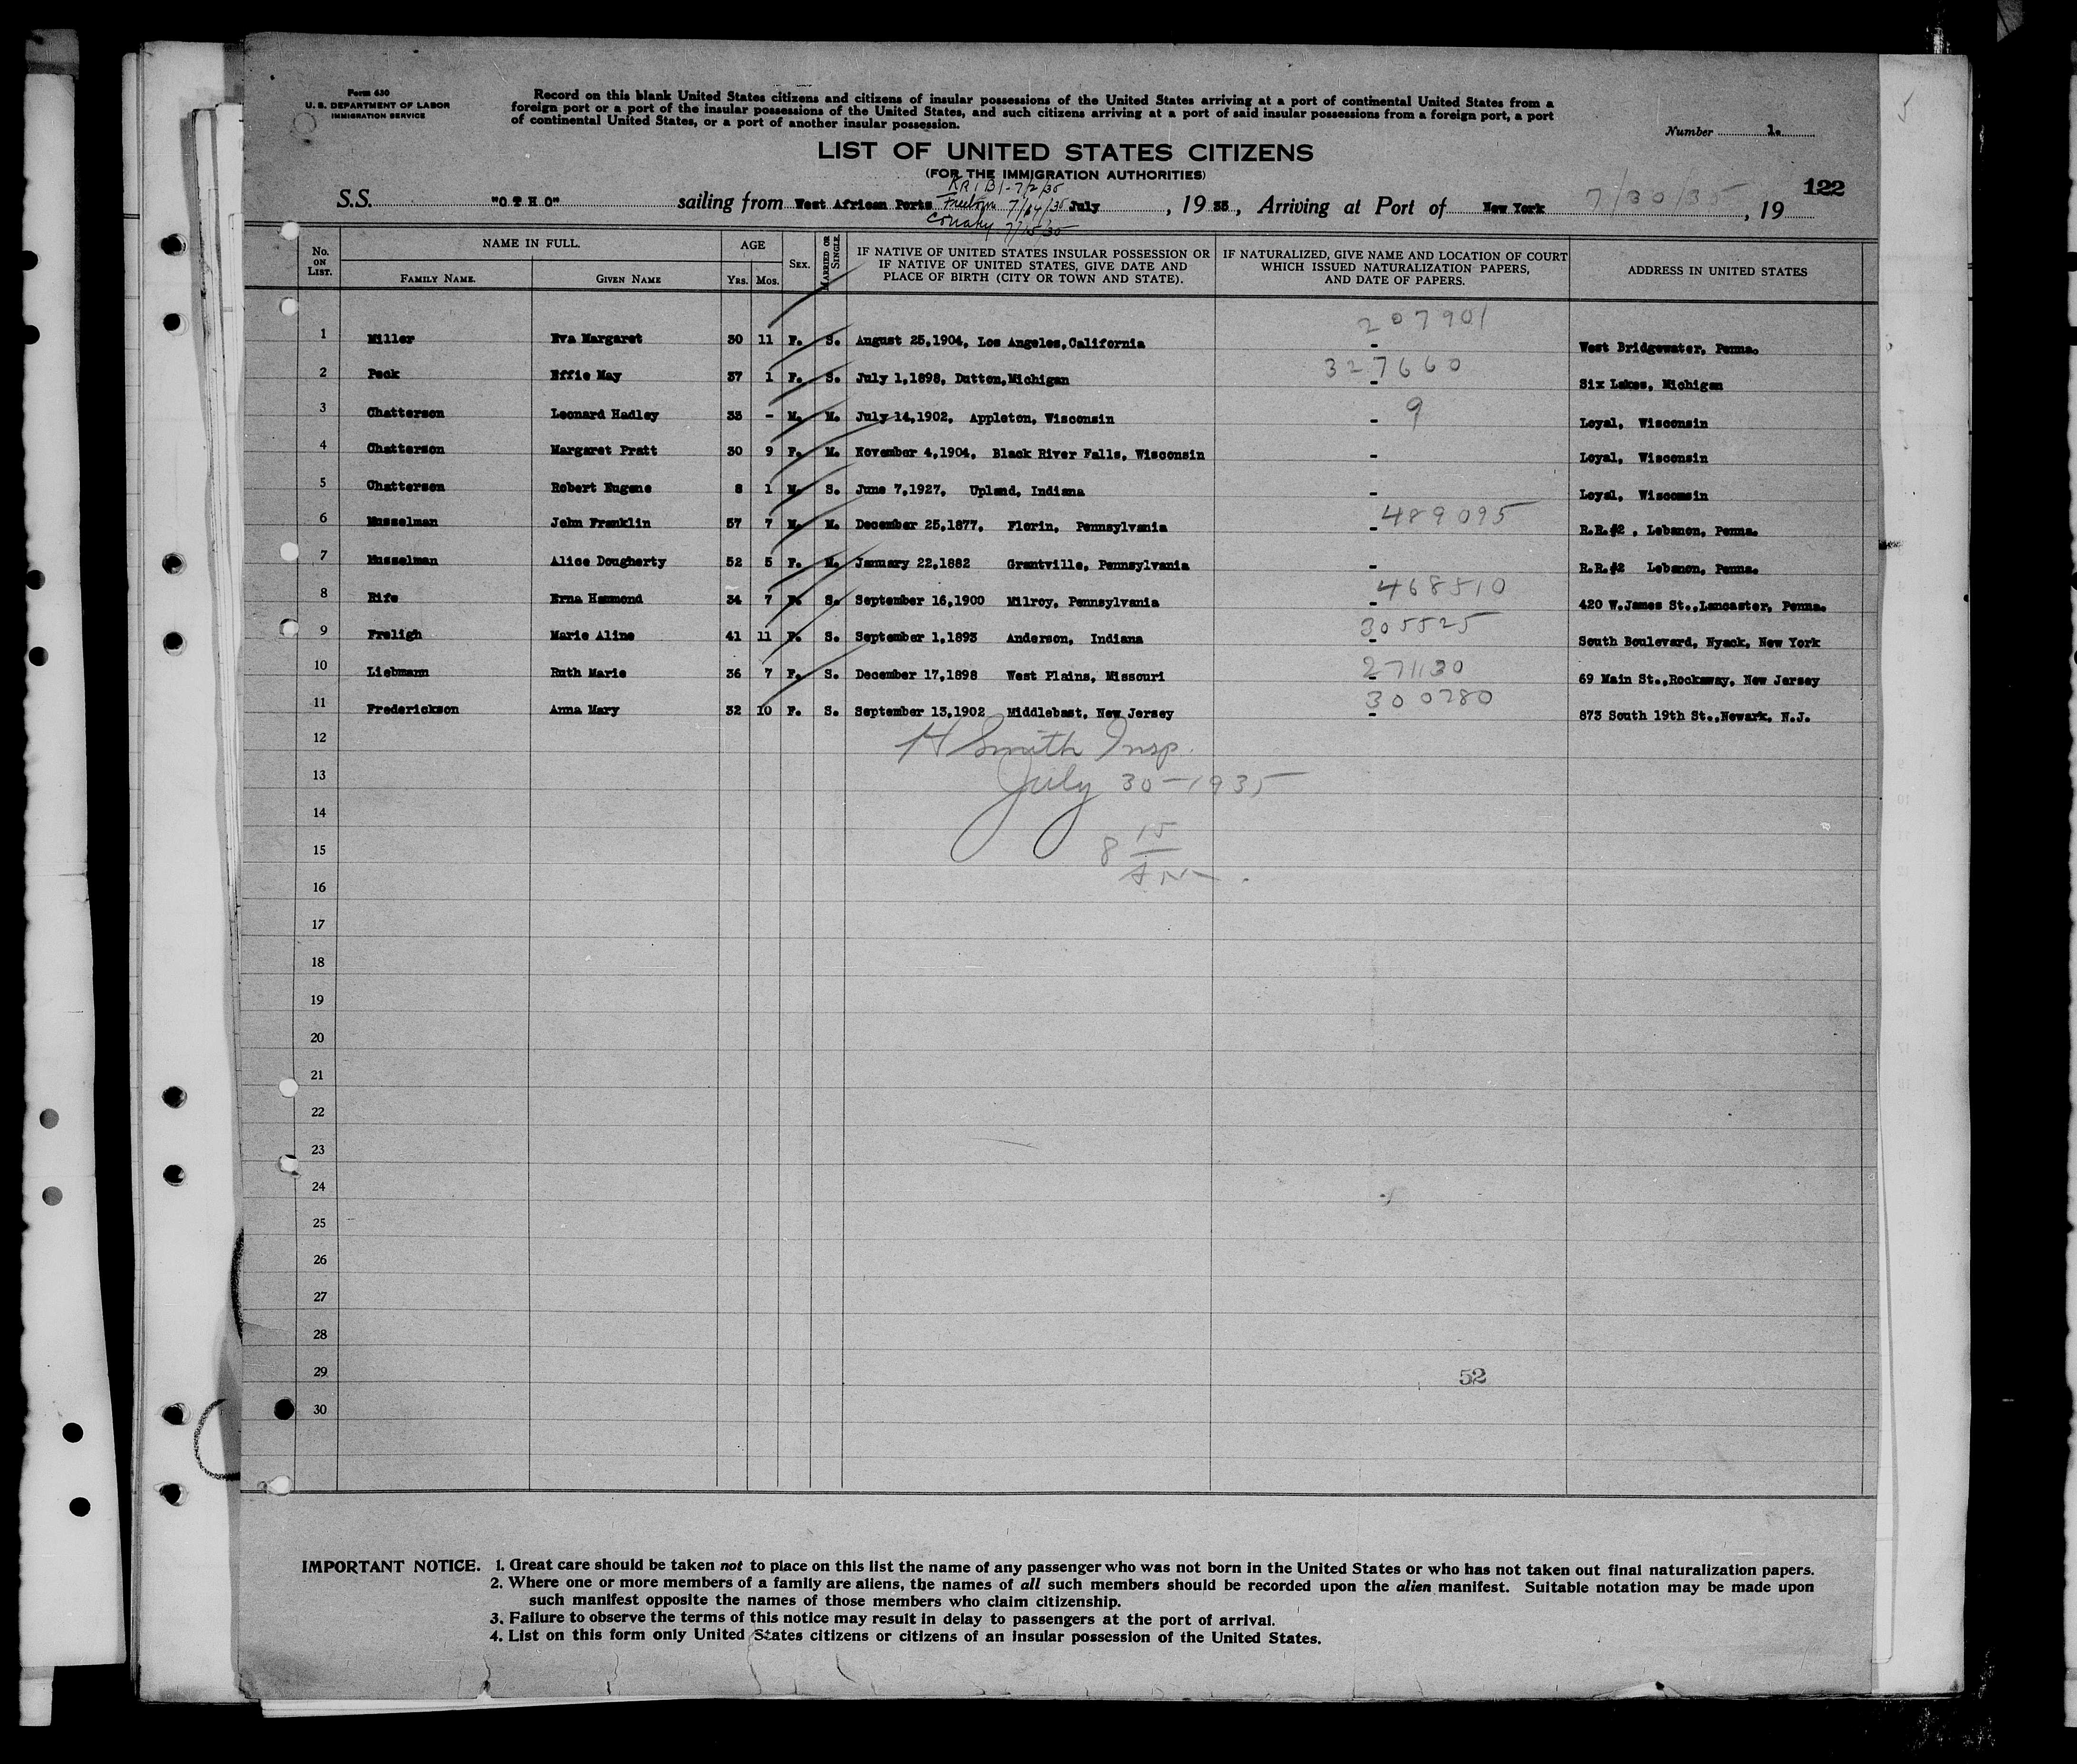 Form 630
U. S. DEPARTMENT OF LABOR
IMMIGRATION SERVICE
Record on this blank United States citizens and citizens of insular possessions of the United States arriving at a port of continental United States from a
foreign port or a port of the insular possessions of the United States, and such citizens arriving at a port of said insular possessions from a foreign port, a port
of continental United States, or a port of another insular possession.
Number 1.
LIST OF UNITED STATES CITIZENS
(FOR THE IMMIGRATION AUTHORITIES)
122
KRIBI-7/2/35
S.S. "OTHO" sailing from West African Ports Freetown 7/14/35 July, 1935, Arriving at Port of New York 7/30/35, 19
Conakry 7/15/35
No. ON LIST. NAME IN FULL. AGE SEX. MARRIED OR SINGLE. IF NATIVE OF UNITED STATES INSULAR POSSESSION OR IF NATIVE OF UNITED STATES, GIVE DATE AND PLACE OF BIRTH (CITY OR TOWN AND STATE). IF NATURALIZED, GIVE NAME AND LOCATION OF COURT WHICH ISSUED NATURALIZATION PAPERS, AND DATE OF PAPERS. ADDRESS IN UNITED STATES
FAMILY NAME. GIVEN NAME YRS. MOS.
207901
1 Miller Eva Margaret 30 11 F. S. August 25,1904, Los Angeles,California - West Bridgewater, Penna.
327660
2 Peck Effie May 37 1 F. S. July 1,1898, Dutton,Michigan - Six Lakes, Michigan
3 Chatterson Leonard Hadley 33 - M. M. July 14,1902, Appleton, Wisconsin - 9 Loyal, Wisconsin
4 Chatterson Margaret Pratt 30 9 F. M. November 4,1904, Black River Falls, Wisconsin - Loyal, Wisconsin
5 Chatterson Robert Eugene 8 1 M. S. June 7,1927, Upland, Indiana - Loyal, Wisconsin
489095
6 Musselman John Franklin 57 7 M. M. December 25,1877, Florin, Pennsylvania - R.R.#2 , Lebanon, Penna.
7 Musselman Alice Dougherty 52 5 F. M. January 22,1882 Grantville, Pennsylvania - R.R.#2 Lebanon, Penna.
468510
8 Rife Erna Hammond 34 7 F. S. September 16,1900 Milroy, Pennsylvania - 420 W.James St.,Lancaster, Penna.
305525
9 Freligh Marie Aline 41 11 F. S. September 1,1893 Anderson, Indiana - South Boulevard, Nyack, New York
271130
10 Liebmann Ruth Marie 36 7 F. S. December 17,1898 West Plains, Missouri - 69 Main St.,Rockaway, New Jersey
300280
11 Frederickson Anna Mary 32 10 F. S. September 13,1902 Middlebast, New Jersey - 873 South 19th St.,Newark, N.J.
12
H Smith Insp.
13
July 30-1935
14
15
8 15
AM
16
17
18
19
20
21
22
23
24
25
26
27
28
29
52
30
IMPORTANT NOTICE. 1. Great care should be taken not to place on this list the name of any passenger who was not born in the United States or who has not taken out final naturalization papers.
2. Where one or more members of a family are aliens, the names of all such members should be recorded upon the alien manifest. Suitable notation may be made upon
such manifest opposite the names of those members who claim citizenship.
3. Failure to observe the terms of this notice may result in delay to passengers at the port of arrival.
4. List on this form only United States citizens or citizens of an insular possession of the United States.